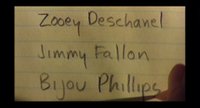 Zooey Deschanel
Jimmy Fallon
Bijou Phillips